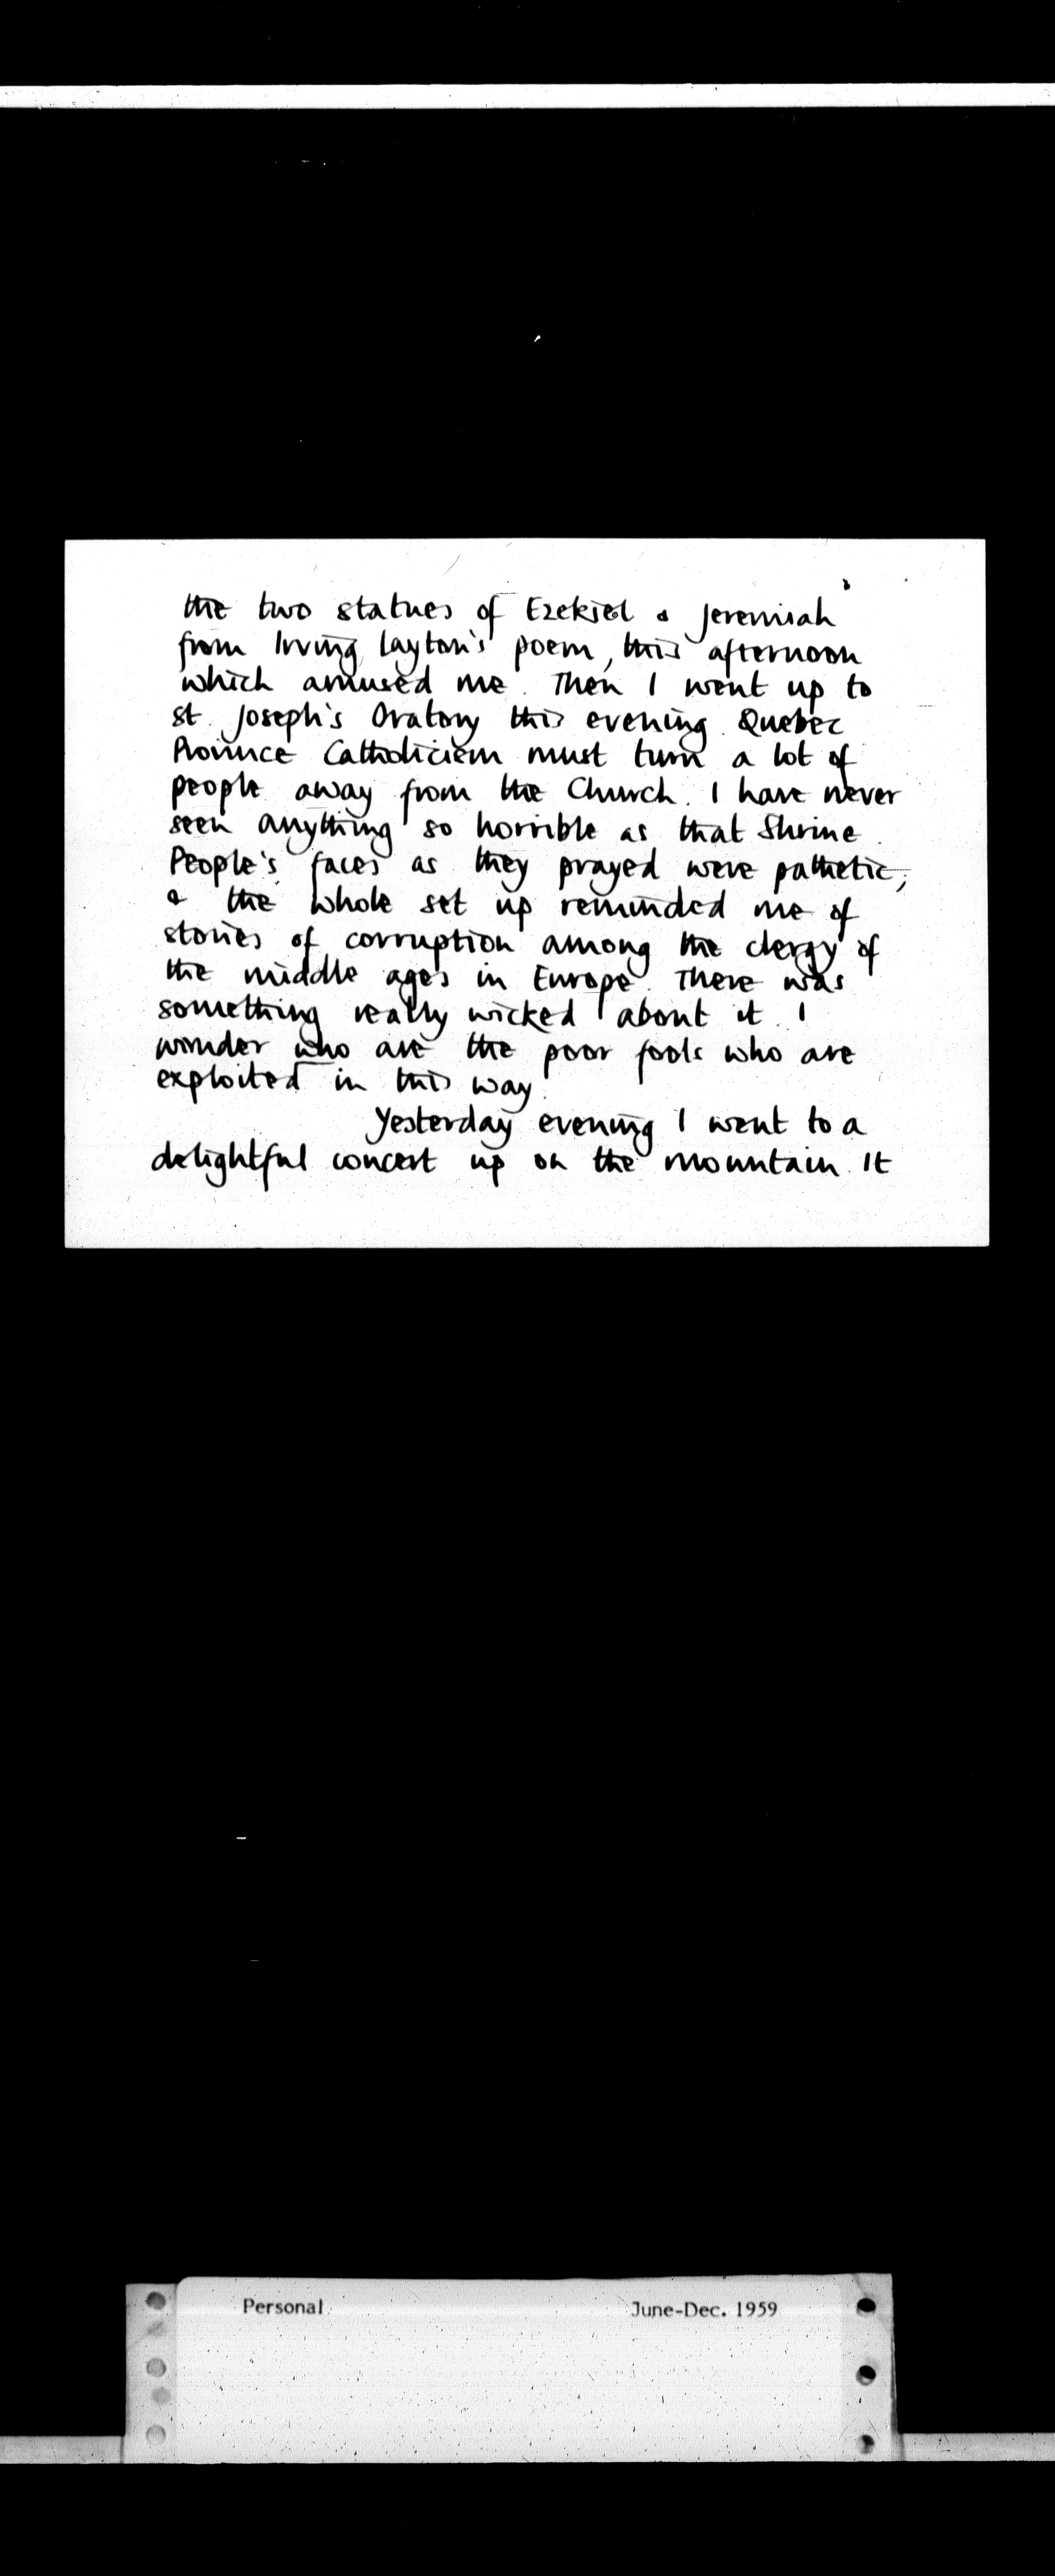 the two statues of Ezekiel & Jeremiah
from Irving Layton's poem, this afternoon
which amused me. Then I went up to
St. Joseph's Oratory this evening. Quebec
Province Catholicism must turn a lot of
people away from the Church. I have never
seen anything so horrible as that Shrine.
People's faces as they prayed were pathetic,
& the whole set up reminded me of
stories of corruption among the clergy of
the middle ages in Europe. There was
something really wicked about it. I
wonder who are the poor fools who are
exploited in this way.
Yesterday evening I went to a
delightful concert up on the mountain. It
Personal June-Dec. 1959